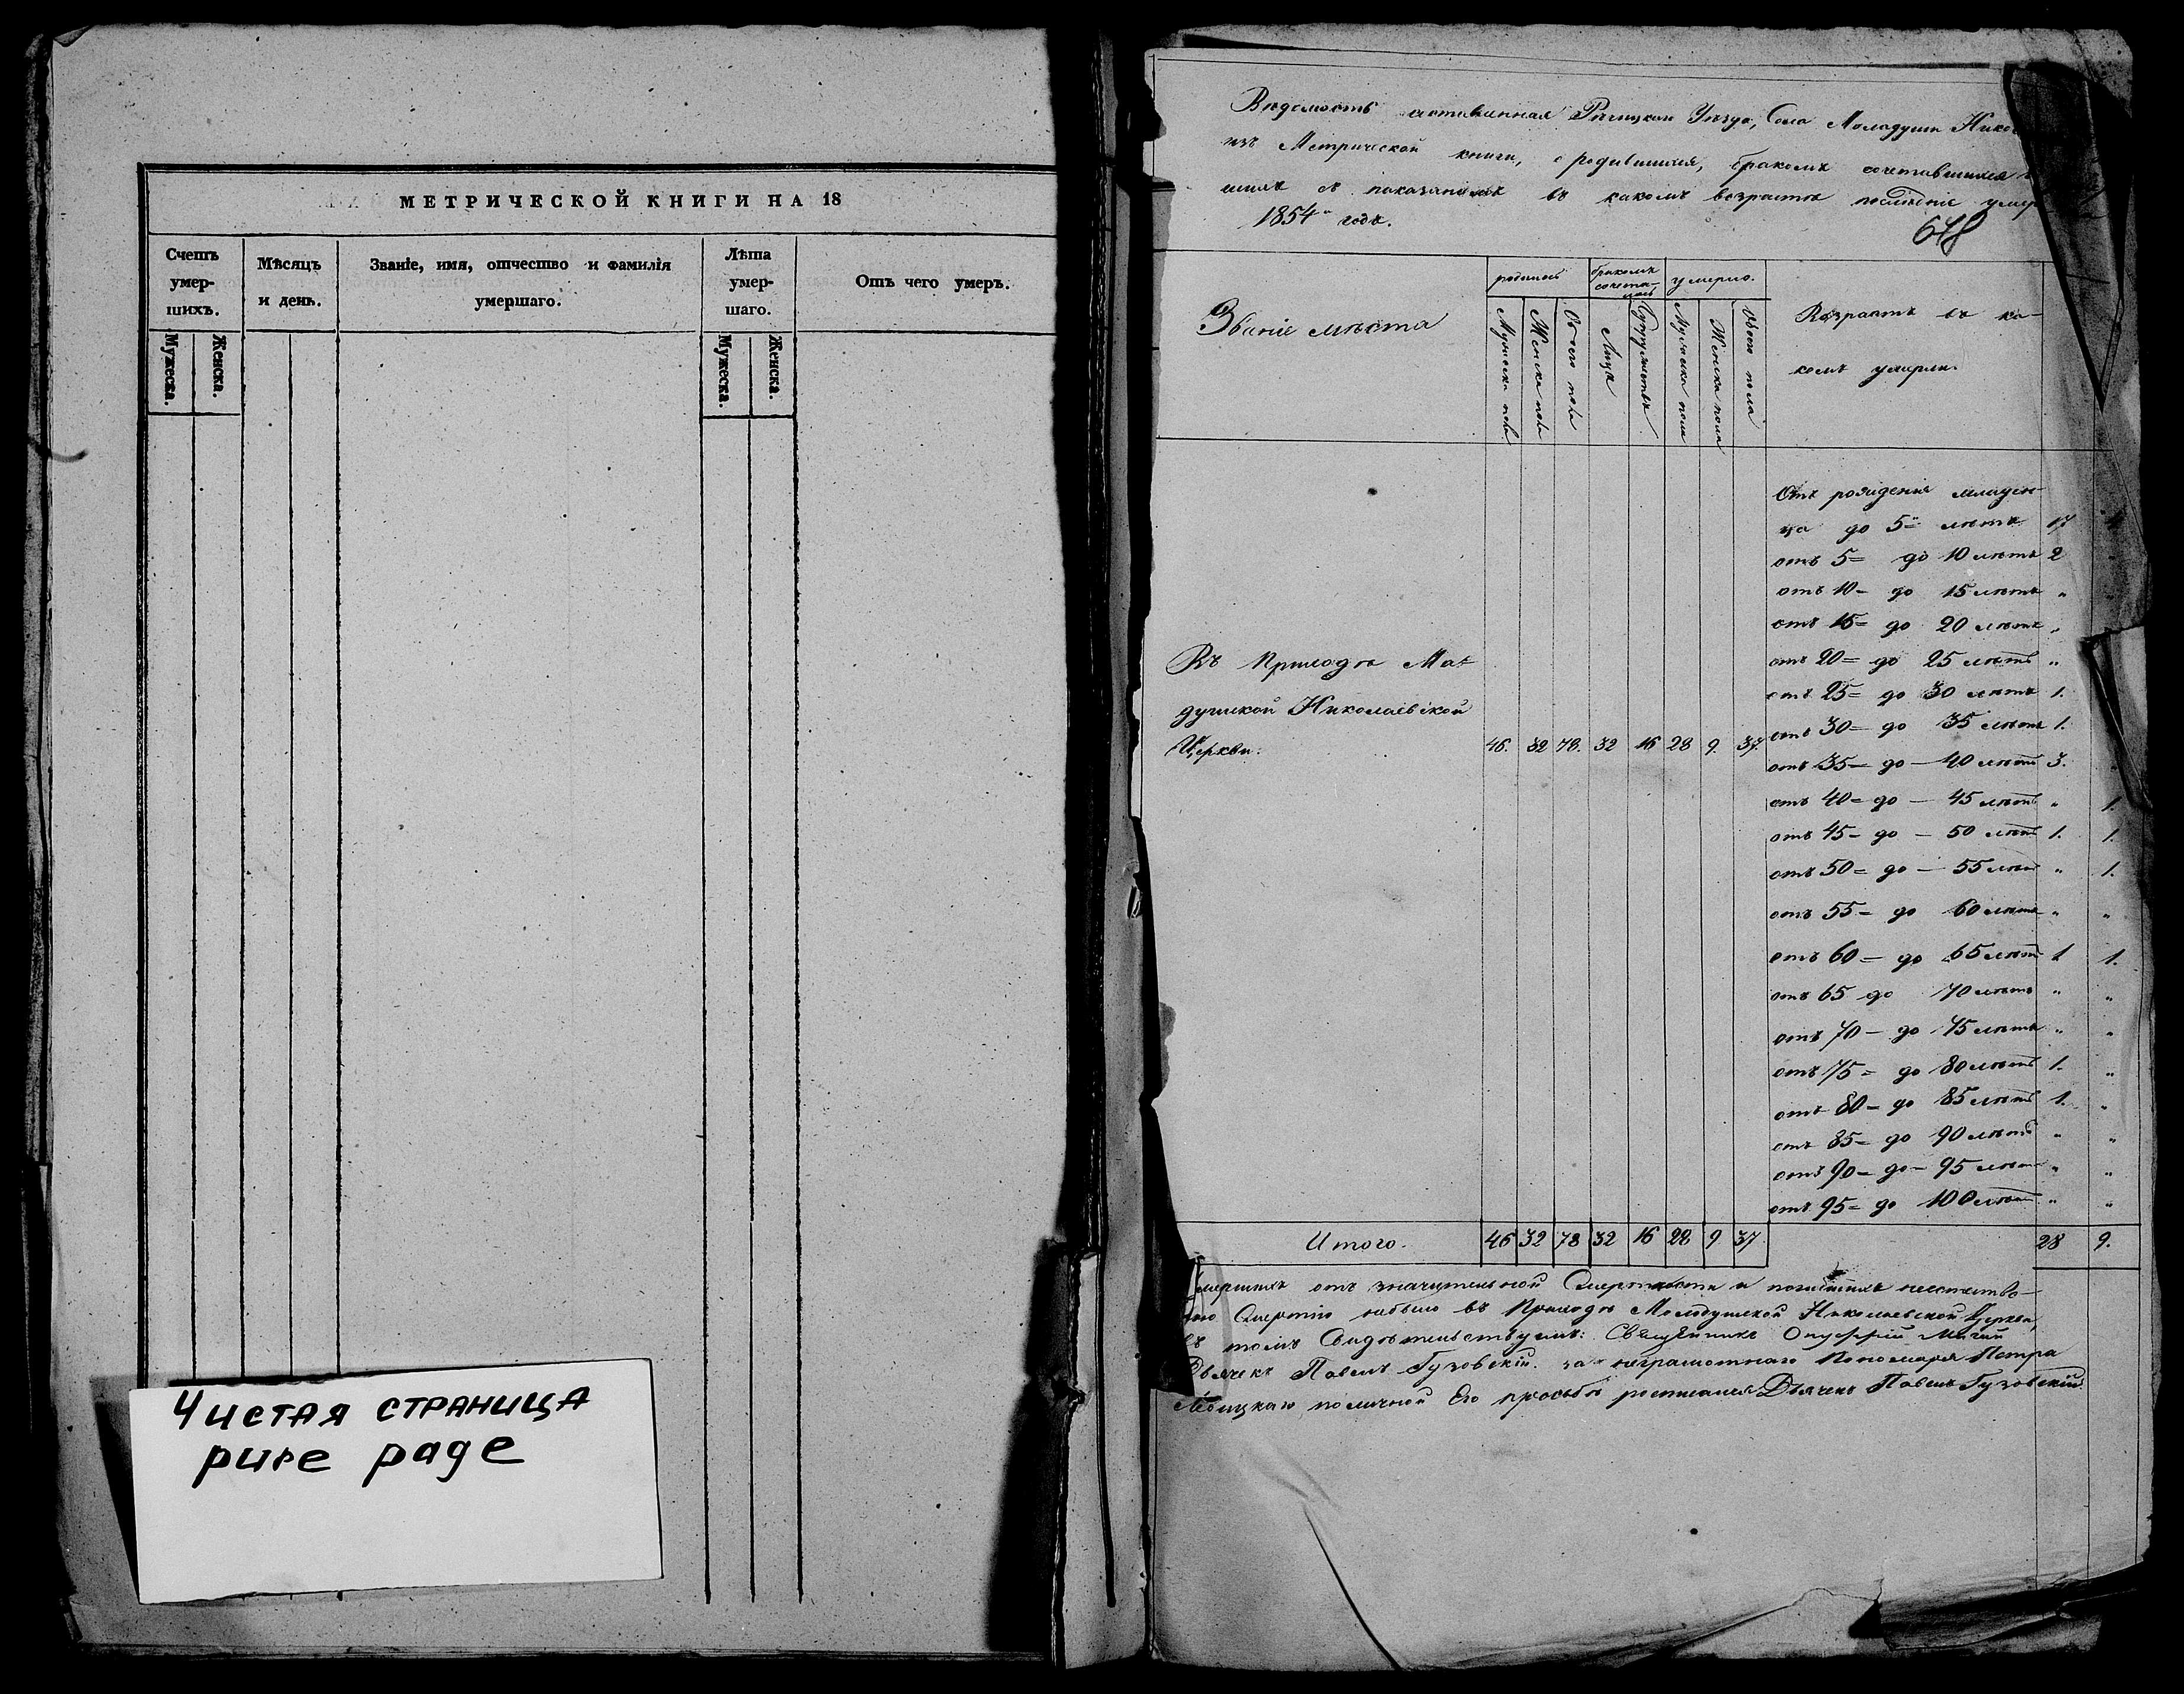 МЕТРИЧЕСКОЙ КНИГИ НА 18
Счетъ умер-шихъ.
Мужеска.
Женска.
Мѣсяцъ и день.
Званіе, имя, отчество и фамилія умершаго.
Лѣта умер-шаго.
Мужеска.
Женска.
Отъ чего умеръ.
Чистая страница
pure page
Ведомость составленная Рѣчицкаго Уѣзда, Села Маладуши
изъ Метрической книги, о родившихся, бракомъ сочетавшихся
шихъ съ показаніемъ въ какомъ возрастѣ послѣдніе
1854 года.
678
Званіе мѣста
родилось
Мужеска пола
Женска пола
Обоего пола
бракомъ сочета-лось
Лицъ
Супружествъ
умерло.
Мужеска пола
Женска пола
Обоего пола
Возрастъ въ ка-
комъ умерли.
Отъ рожденія младен-
ца до 5 лѣтъ 17
отъ 5 = до 10 лѣтъ 2
отъ 10 - до 15 лѣтъ "
отъ 15 = до 20 лѣтъ "
отъ 20 = до 25 лѣтъ "
отъ 25 = до 30 лѣтъ 1.
отъ 30 = до 35 лѣтъ 1.
отъ 35 = до - 40 лѣтъ 3.
отъ 40 = до - 45 лѣтъ " 1.
отъ 45 - до - 50 лѣтъ 1. 1.
отъ 50 = до - 55 лѣтъ " 1.
отъ 55 - до 60 лѣтъ " "
отъ 60 - до 65 лѣтъ 1 1.
отъ 65 до 70 лѣтъ " "
отъ 70 - до 75 лѣтъ " "
отъ 75 = до 80 лѣтъ 1. "
отъ 80 - до 85 лѣтъ 1. "
отъ 85 = до 90 лѣтъ " "
отъ 90 - до - 95 лѣтъ " "
отъ 95 = до 100 лѣтъ " "
Въ Приходѣ Ма-
душской Николаевской
Церкви. 46. 32 78. 32 16 28 9. 37.
Итого. 46 32 78 32 16 28 9 37 28 9.
отъ значительной Смертности и погибшихъ неестество-
Смертію небыло въ Приходѣ Молодушской Николаевской Церкви,
въ томъ Свидѣтельствуемъ: Священникъ Онуфрій
Дьячекъ Павелъ Гузовскій. за неграмотнаго Пономаря Петра
по личной Его просьбѣ росписался Дьячекъ Павелъ Гузовскій.